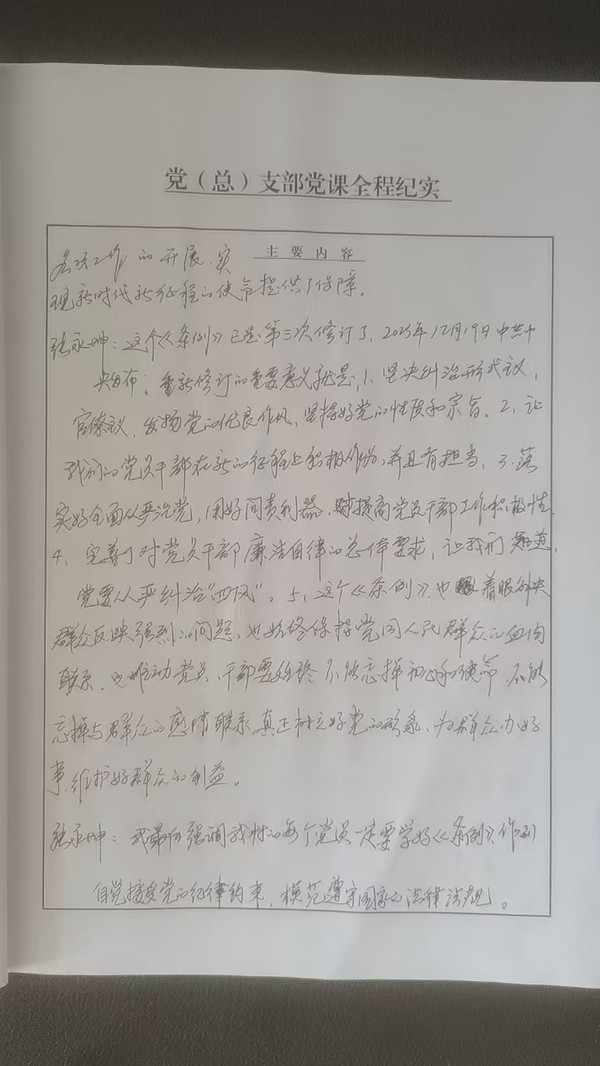 党（总）支部党课全程纪实
主要内容
各项工作的开展、实
现新时代新征程的使命提供了保障。
张永坤：这个《条例》已是第三次修订了，2023年12月19日中共中
央发布；重新修订的重要意义就是，1、坚决纠治形式主义、
官僚主义，发扬党的优良作风，坚持好党的性质和宗旨。2、让
我们的党员干部在新的征程上积极作为，并且有担当。3、落
实好全面从严治党，用好问责利器，提高党员干部工作积极性。
4、完善了对党员干部廉洁自律的总体要求，让我们知道，
党要从严纠治“四风”。5、这个《条例》也着眼解决
群众反映强烈的问题，也始终保持党同人民群众的血肉
联系，也推动党员、干部要始终不能忘掉初心和使命，不能
忘掉与群众的感情联系，真正树立好党的形象，为群众办好
事，维护好群众的利益。
张永坤：我最后强调我村的每个党员一定要学好《条例》，作到
自觉接受党的纪律约束，模范遵守国家的法律法规。